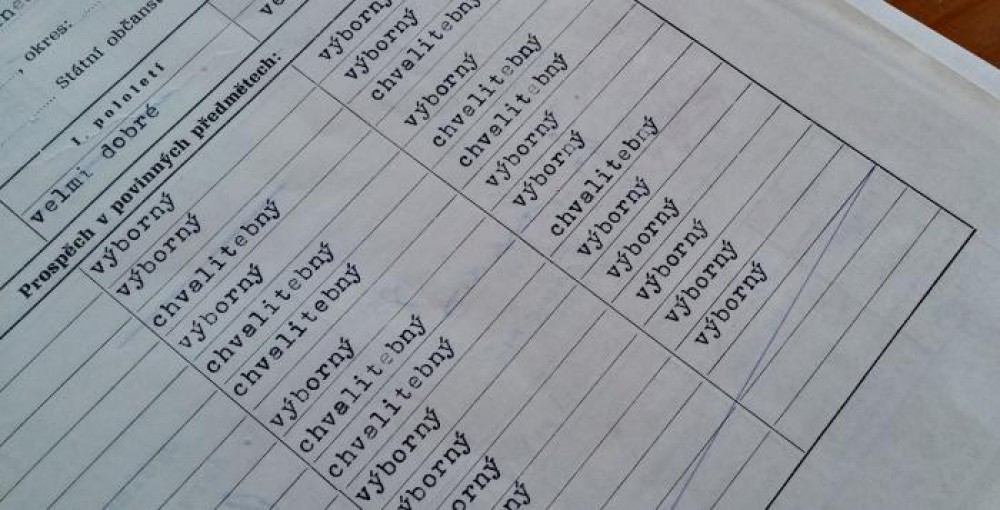 , okres:
Státní občans
I. pololetí
velmi dobré
ve
Prospěch v povinných předmětech:
výborný
výborný
chvalitebný
výborný
chvalitebný
chvalitebný
výborný
chvalitebný
chvalitebný
výborný
ýborný
orný
ný
výborný
výborný
chvalitebný
výborný
chvalitebný
chvalitebný
výborný
výborný
chvalitebný
výborný
výborný
výborný
výborný
výborný